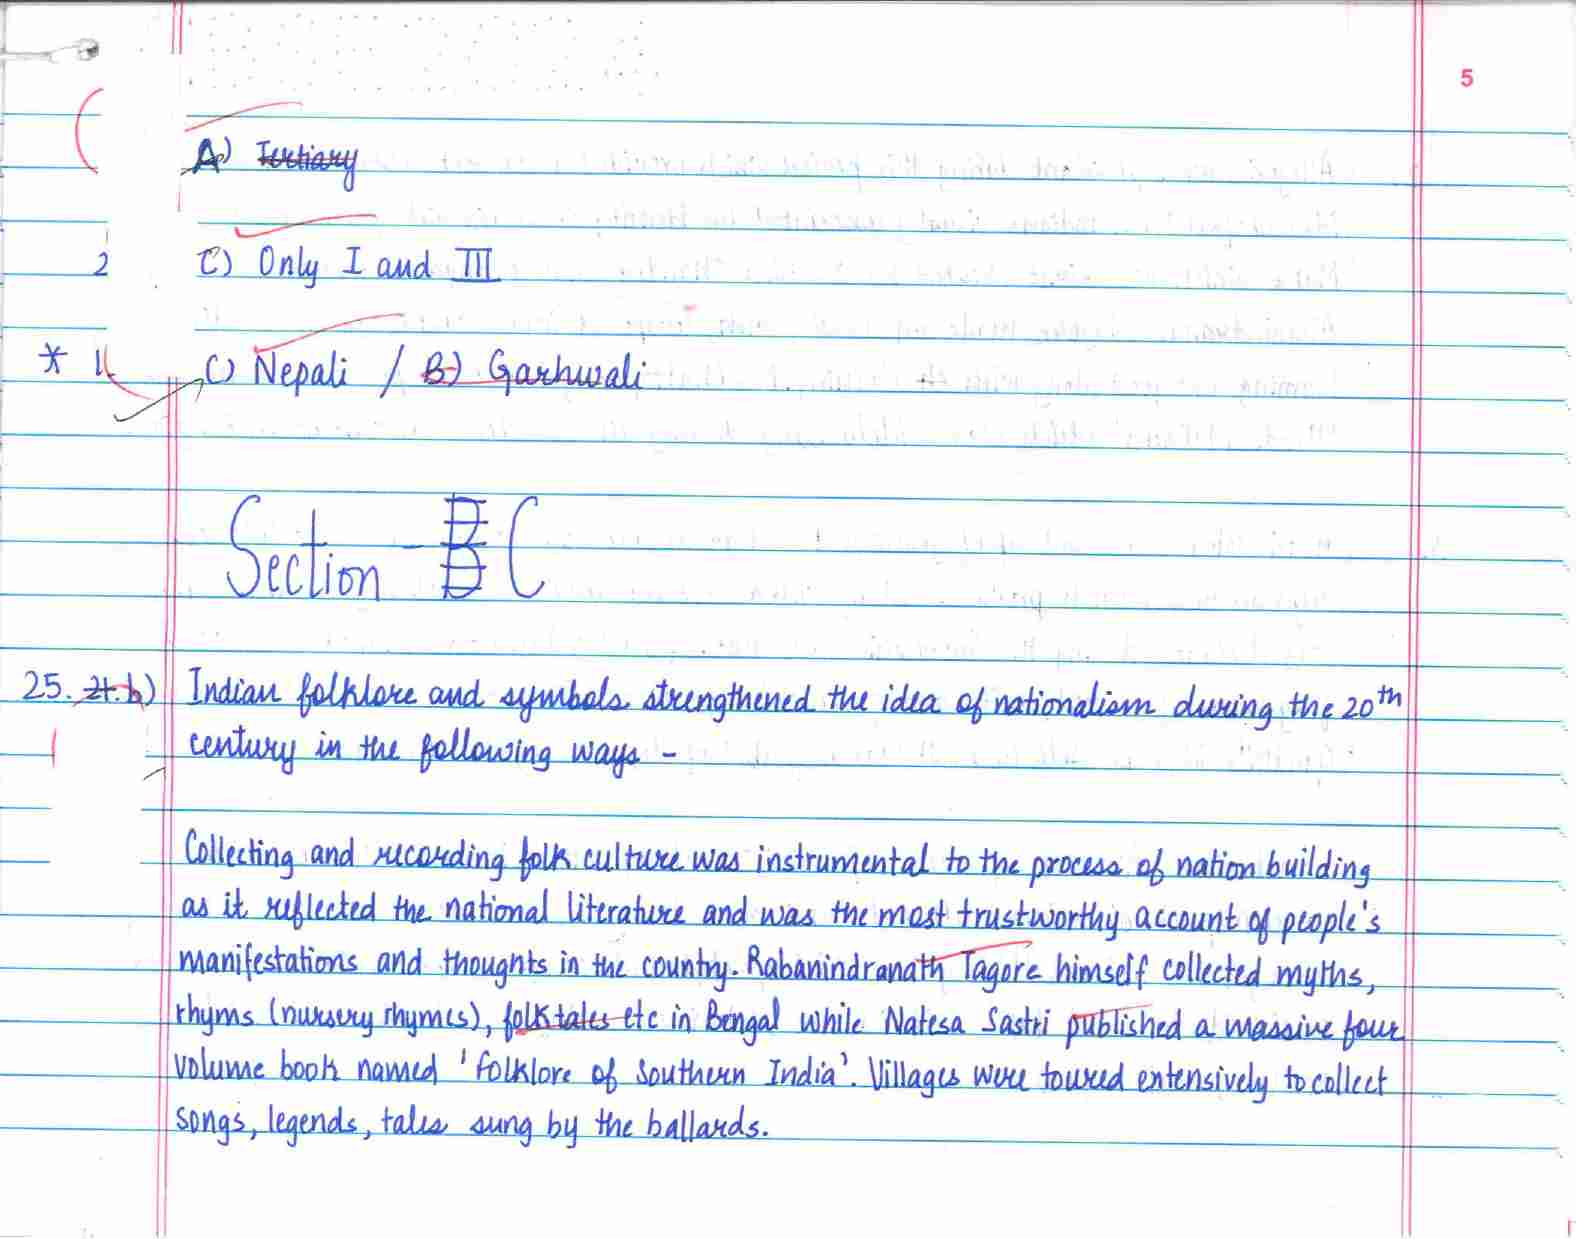 5
A) Tertiary
2 C) Only I and III
* 1. C) Nepali / B) Garhwali
Section - B C
25. 21.b) Indian folklore and symbols strengthened the idea of nationalism during the 20th
century in the following ways -
Collecting and recording folk culture was instrumental to the process of nation building
as it reflected the national literature and was the most trustworthy account of people's
manifestations and thoughts in the country. Rabanindranath Tagore himself collected myths,
rhyms (nursery rhymes), folktales etc in Bengal while Natesa Sastri published a massive four
volume book named 'folklore of Southern India'. Villages were toured extensively to collect
songs, legends, tales sung by the ballards.